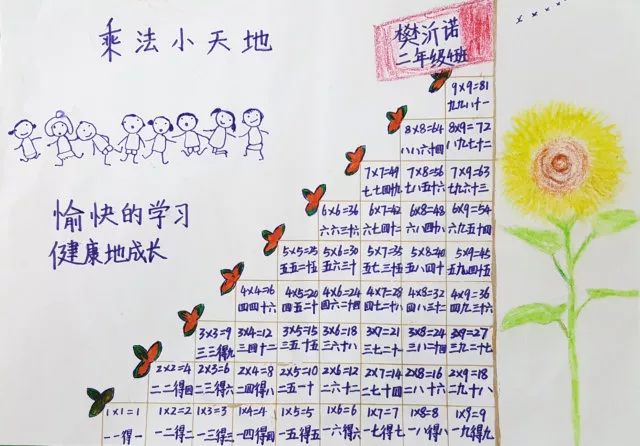 乘法小天地
樊沂诺
二年级4班
9×9=81
九九八十一
8×8=64 8×9=72
八八六十四 八九七十二
7×7=49 7×8=56 7×9=63
七七四十九 七八五十六 七九六十三
愉快的学习
健康地成长
6×6=36 6×7=42 6×8=48 6×9=54
六六三十六 六七四十二 六八四十八 六九五十四
5×5=25 5×6=30 5×7=35 5×8=40 5×9=45
五五二十五 五六三十 五七三十五 五八四十 五九四十五
4×4=16 4×5=20 4×6=24 4×7=28 4×8=32 4×9=36
四四十六 四五二十 四六二十四 四七二十八 四八三十二 四九三十六
3×3=9 3×4=12 3×5=15 3×6=18 3×7=21 3×8=24 3×9=27
三三得九 三四十二 三五十五 三六十八 三七二十一 三八二十四 三九二十七
2×2=4 2×3=6 2×4=8 2×5=10 2×6=12 2×7=14 2×8=16 2×9=18
二二得四 二三得六 二四得八 二五一十 二六十二 二七十四 二八十六 二九十八
1×1=1 1×2=2 1×3=3 1×4=4 1×5=5 1×6=6 1×7=7 1×8=8 1×9=9
一一得一 一二得二 一三得三 一四得四 一五得五 一六得六 一七得七 一八得八 一九得九